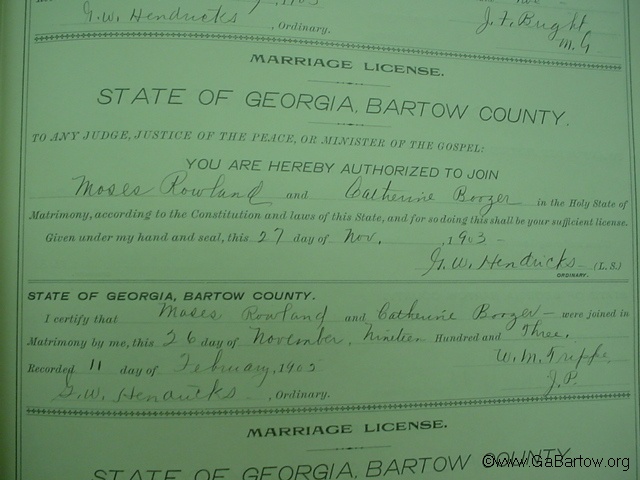 G. W. Hendricks, Ordinary. J. F. Bright
M. G
MARRIAGE LICENSE.
STATE OF GEORGIA, BARTOW COUNTY.
TO ANY JUDGE, JUSTICE OF THE PEACE, OR MINISTER OF THE GOSPEL:
YOU ARE HEREBY AUTHORIZED TO JOIN
Moses Rowland and Catherine Boozer in the Holy State of
Matrimony, according to the Constitution and laws of this State, and for so doing this shall be your sufficient license.
Given under my hand and seal, this 27 day of Nov. , 1903
G. W. Hendricks (L. S.)
ORDINARY.
STATE OF GEORGIA, BARTOW COUNTY.
I certify that Moses Rowland and Catherine Boozer were joined in
Matrimony by me, this 26 day of November, Nineteen Hundred and Three.
Recorded 11 day of February, 1905 W. M. Trippe
G. W. Hendricks, Ordinary. J. P.
MARRIAGE LICENSE.
STATE OF GEORGIA, BARTOW COUNTY.
©www.GaBartow.org